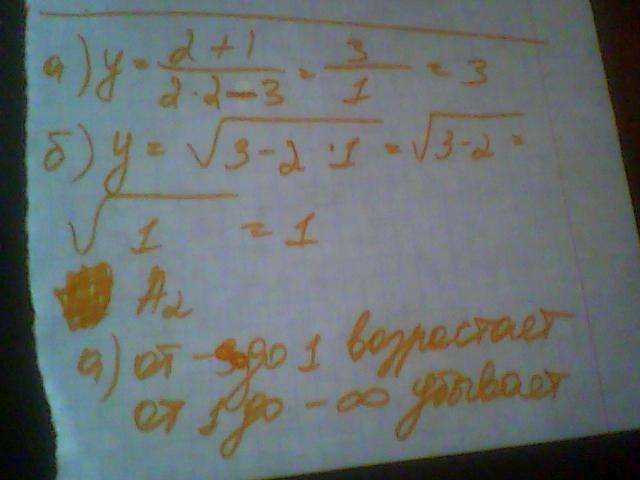 а) y = 2+1 / 2·2-3 = 3 / 1 = 3
б) y = √3-2·1 = √3-2 =
√1 = 1
A2
а) от - до 1 возрастает
от до -∞ убывает